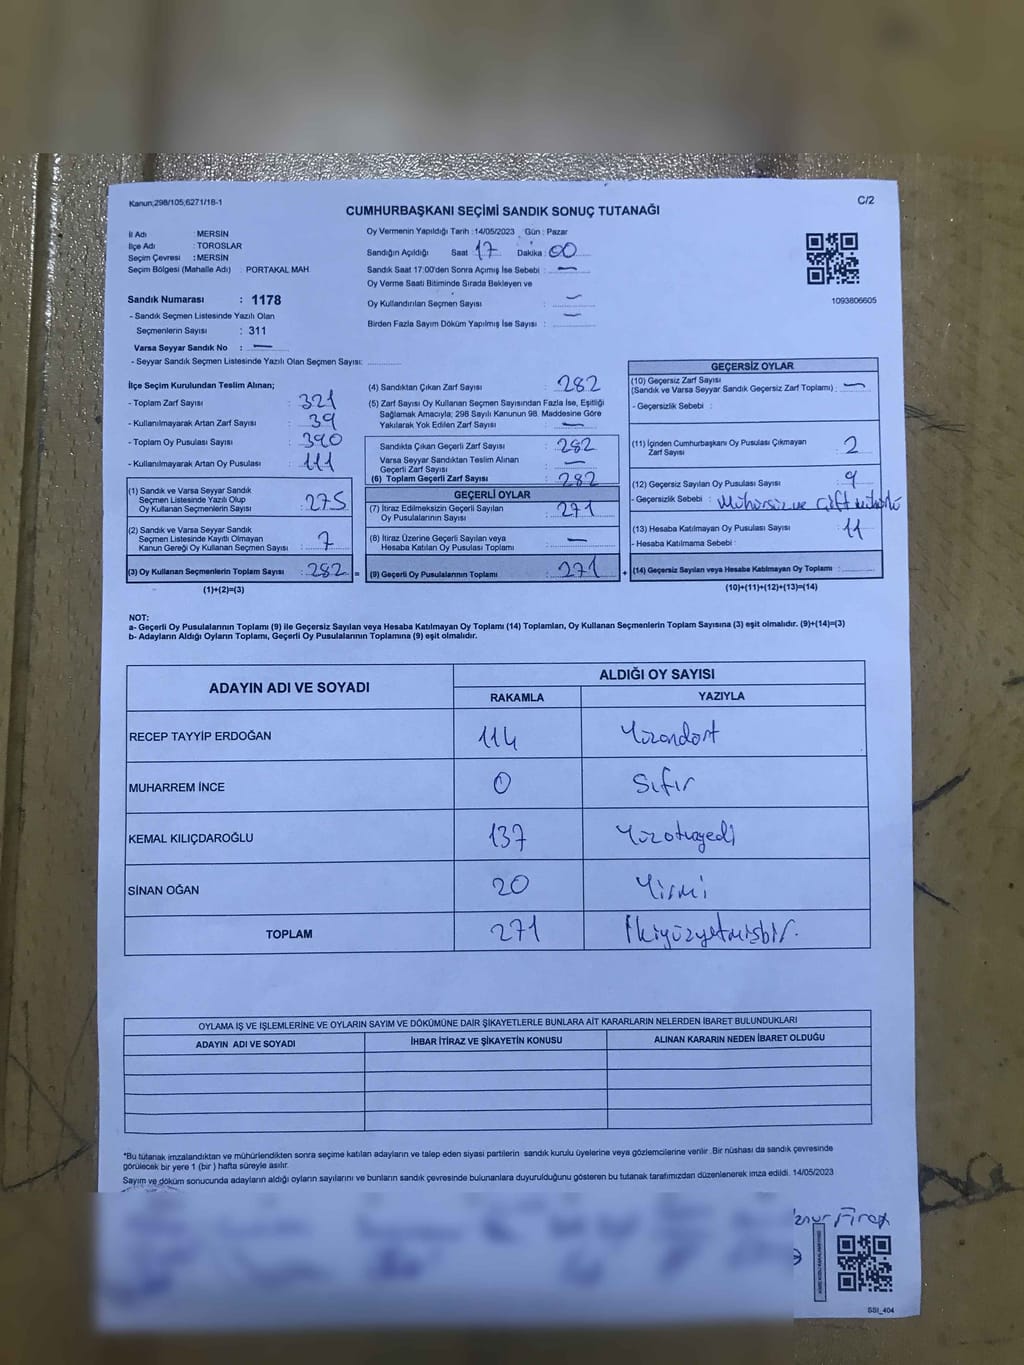 Kanun;298/105;6271/18-1
C/2
CUMHURBAŞKANI SEÇİMİ SANDIK SONUÇ TUTANAĞI
İl Adı : MERSİN
İlçe Adı : TOROSLAR
Seçim Çevresi : MERSİN
Seçim Bölgesi (Mahalle Adı) : PORTAKAL MAH
Sandık Numarası : 1178
- Sandık Seçmen Listesinde Yazılı Olan
Seçmenlerin Sayısı : 311
Varsa Seyyar Sandık No : —
- Seyyar Sandık Seçmen Listesinde Yazılı Olan Seçmen Sayısı:
Oy Vermenin Yapıldığı Tarih :14/05/2023 Gün : Pazar
Sandığın Açıldığı Saat 17 Dakika : 00
Sandık Saat 17:00'den Sonra Açımış İse Sebebi : —
Oy Verme Saati Bitiminde Sırada Bekleyen ve
Oy Kullandırılan Seçmen Sayısı : —
Birden Fazla Sayım Döküm Yapılmış İse Sayısı : —
1093806605
İlçe Seçim Kurulundan Teslim Alınan;
- Toplam Zarf Sayısı : 321
- Kullanılmayarak Artan Zarf Sayısı : 39
- Toplam Oy Pusulası Sayısı : 390
- Kullanılmayarak Artan Oy Pusulası : 111
(1) Sandık ve Varsa Seyyar Sandık
Seçmen Listesinde Yazılı Olup
Oy Kullanan Seçmenlerin Sayısı : 275
(2) Sandık ve Varsa Seyyar Sandık
Seçmen Listesinde Kayıtlı Olmayan
Kanun Gereği Oy Kullanan Seçmen Sayısı : 7
(3) Oy Kullanan Seçmenlerin Toplam Sayısı : 282 =
(1)+(2)=(3)
(4) Sandıktan Çıkan Zarf Sayısı : 282
(5) Zarf Sayısı Oy Kullanan Seçmen Sayısından Fazla İse, Eşitliği
Sağlamak Amacıyla; 298 Sayılı Kanunun 98. Maddesine Göre
Yakılarak Yok Edilen Zarf Sayısı : —
Sandıkta Çıkan Geçerli Zarf Sayısı : 282
Varsa Seyyar Sandıktan Teslim Alınan
Geçerli Zarf Sayısı : —
(6) Toplam Geçerli Zarf Sayısı : 282
GEÇERLİ OYLAR
(7) İtiraz Edilmeksizin Geçerli Sayılan
Oy Pusulalarının Sayısı : 271
(8) İtiraz Üzerine Geçerli Sayılan veya
Hesaba Katılan Oy Pusulası Toplamı : —
(9) Geçerli Oy Pusulalarının Toplamı : 271 +
GEÇERSİZ OYLAR
(10) Geçersiz Zarf Sayısı
(Sandık ve Varsa Seyyar Sandık Geçersiz Zarf Toplamı) : —
- Geçersizlik Sebebi :
(11) İçinden Cumhurbaşkanı Oy Pusulası Çıkmayan
Zarf Sayısı : 2
(12) Geçersiz Sayılan Oy Pusulası Sayısı : 9
- Geçersizlik Sebebi : Mühürsüz ve Çift mühürlü
(13) Hesaba Katılmayan Oy Pusulası Sayısı : 11
- Hesaba Katılmama Sebebi :
(14) Geçersiz Sayılan veya Hesaba Katılmayan Oy Toplamı :
(10)+(11)+(12)+(13)=(14)
NOT:
a- Geçerli Oy Pusulalarının Toplamı (9) ile Geçersiz Sayılan veya Hesaba Katılmayan Oy Toplamı (14) Toplamları, Oy Kullanan Seçmenlerin Toplam Sayısına (3) eşit olmalıdır. (9)+(14)=(3)
b- Adayların Aldığı Oyların Toplamı, Geçerli Oy Pusulalarının Toplamına (9) eşit olmalıdır.
ADAYIN ADI VE SOYADI ALDIĞI OY SAYISI
RAKAMLA YAZIYLA
RECEP TAYYİP ERDOĞAN 114 Yüzondört
MUHARREM İNCE 0 Sıfır
KEMAL KILIÇDAROĞLU 137 Yüzotuzyedi
SİNAN OĞAN 20 Yirmi
TOPLAM 271 İkiyüzyetmişbir.
OYLAMA İŞ VE İŞLEMLERİNE VE OYLARIN SAYIM VE DÖKÜMÜNE DAİR ŞİKAYETLERLE BUNLARA AİT KARARLARIN NELERDEN İBARET BULUNDUKLARI
ADAYIN ADI VE SOYADI İHBAR İTİRAZ VE ŞİKAYETİN KONUSU ALINAN KARARIN NEDEN İBARET OLDUĞU
*Bu tutanak imzalandıktan ve mühürlendikten sonra seçime katılan adayların ve talep eden siyasi partilerin sandık kurulu üyelerine veya gözlemcilerine verilir. Bir nüshası da sandık çevresinde
görülecek bir yere 1 (bir) hafta süreyle asılır.
Sayım ve döküm sonucunda adayların aldığı oyların sayılarını ve bunların sandık çevresinde bulunanlara duyurulduğunu gösteren bu tutanak tarafımızdan düzenlenerek imza edildi. 14/05/2023
Fırat
SSI_404